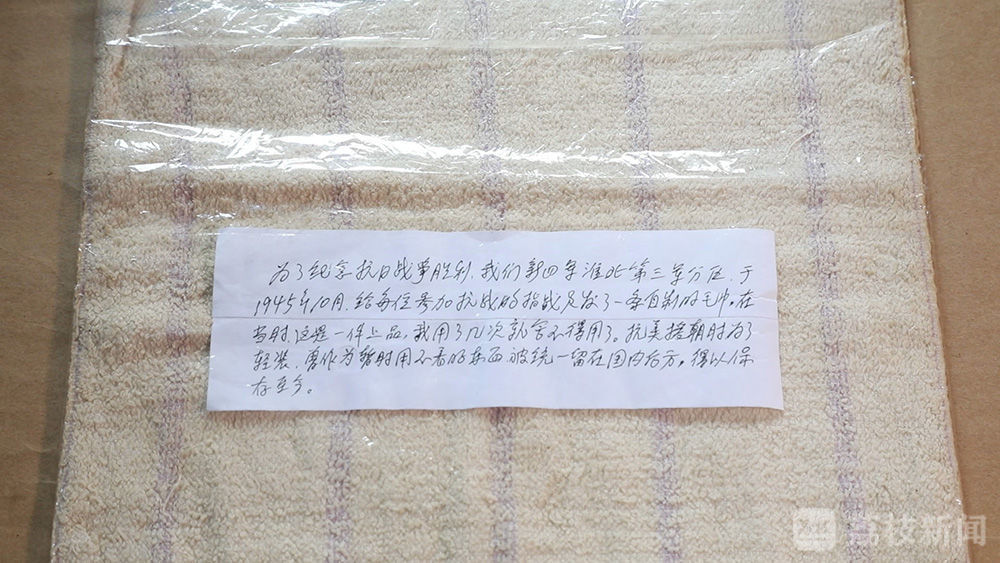 为了纪念抗日战争胜利,我们新四军淮北第三军分区,于
1945年10月,给每位参加抗战的指战员发了一条自制的毛巾。在
当时,这是一件上品,我用了几次就舍不得用了。抗美援朝时为了
轻装,便作为暂时用不着的东西被统一留在国内后方。得以保
存至今。
荔枝新闻